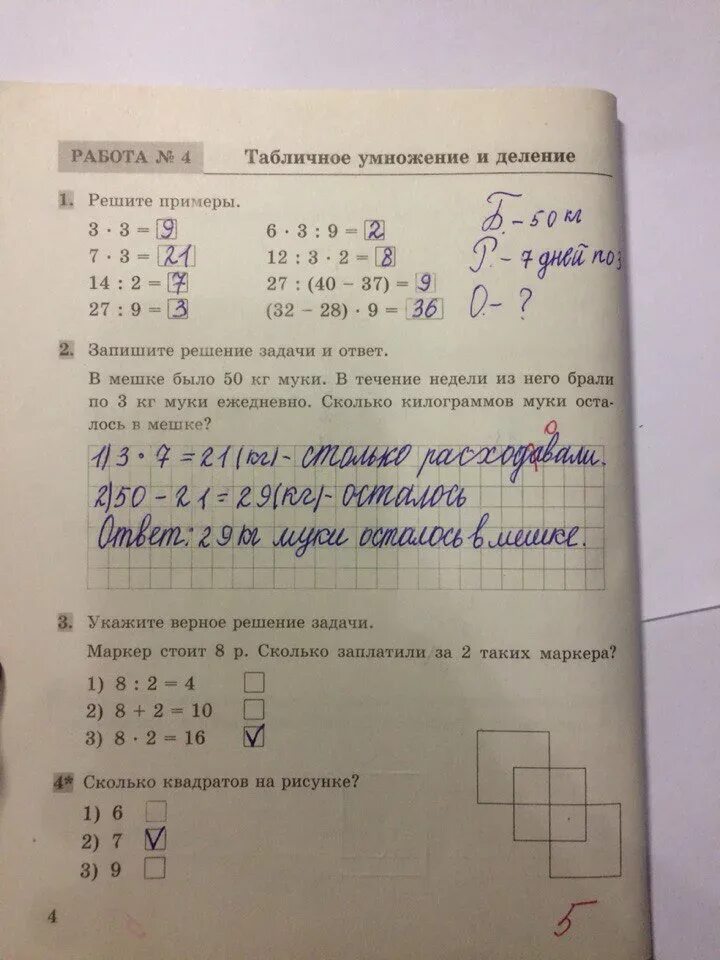 РАБОТА № 4 Табличное умножение и деление
1. Решите примеры.
3 · 3 = 9 6 · 3 : 9 = 2
7 · 3 = 21 12 : 3 · 2 = 8
14 : 2 = 7 27 : (40 – 37) = 9
27 : 9 = 3 (32 – 28) · 9 = 36
Б. – 50 кг
Р. – 7 дней по 3
О. – ?
2. Запишите решение задачи и ответ.
В мешке было 50 кг муки. В течение недели из него брали
по 3 кг муки ежедневно. Сколько килограммов муки оста-
лось в мешке?
о
1) 3 · 7 = 21 (кг) – столько расходавали.
2) 50 – 21 = 29 (кг) – осталось
Ответ: 29 кг муки осталось в мешке.
3. Укажите верное решение задачи.
Маркер стоит 8 р. Сколько заплатили за 2 таких маркера?
1) 8 : 2 = 4
2) 8 + 2 = 10
3) 8 · 2 = 16 V
4* Сколько квадратов на рисунке?
1) 6
2) 7 V
3) 9
4
5